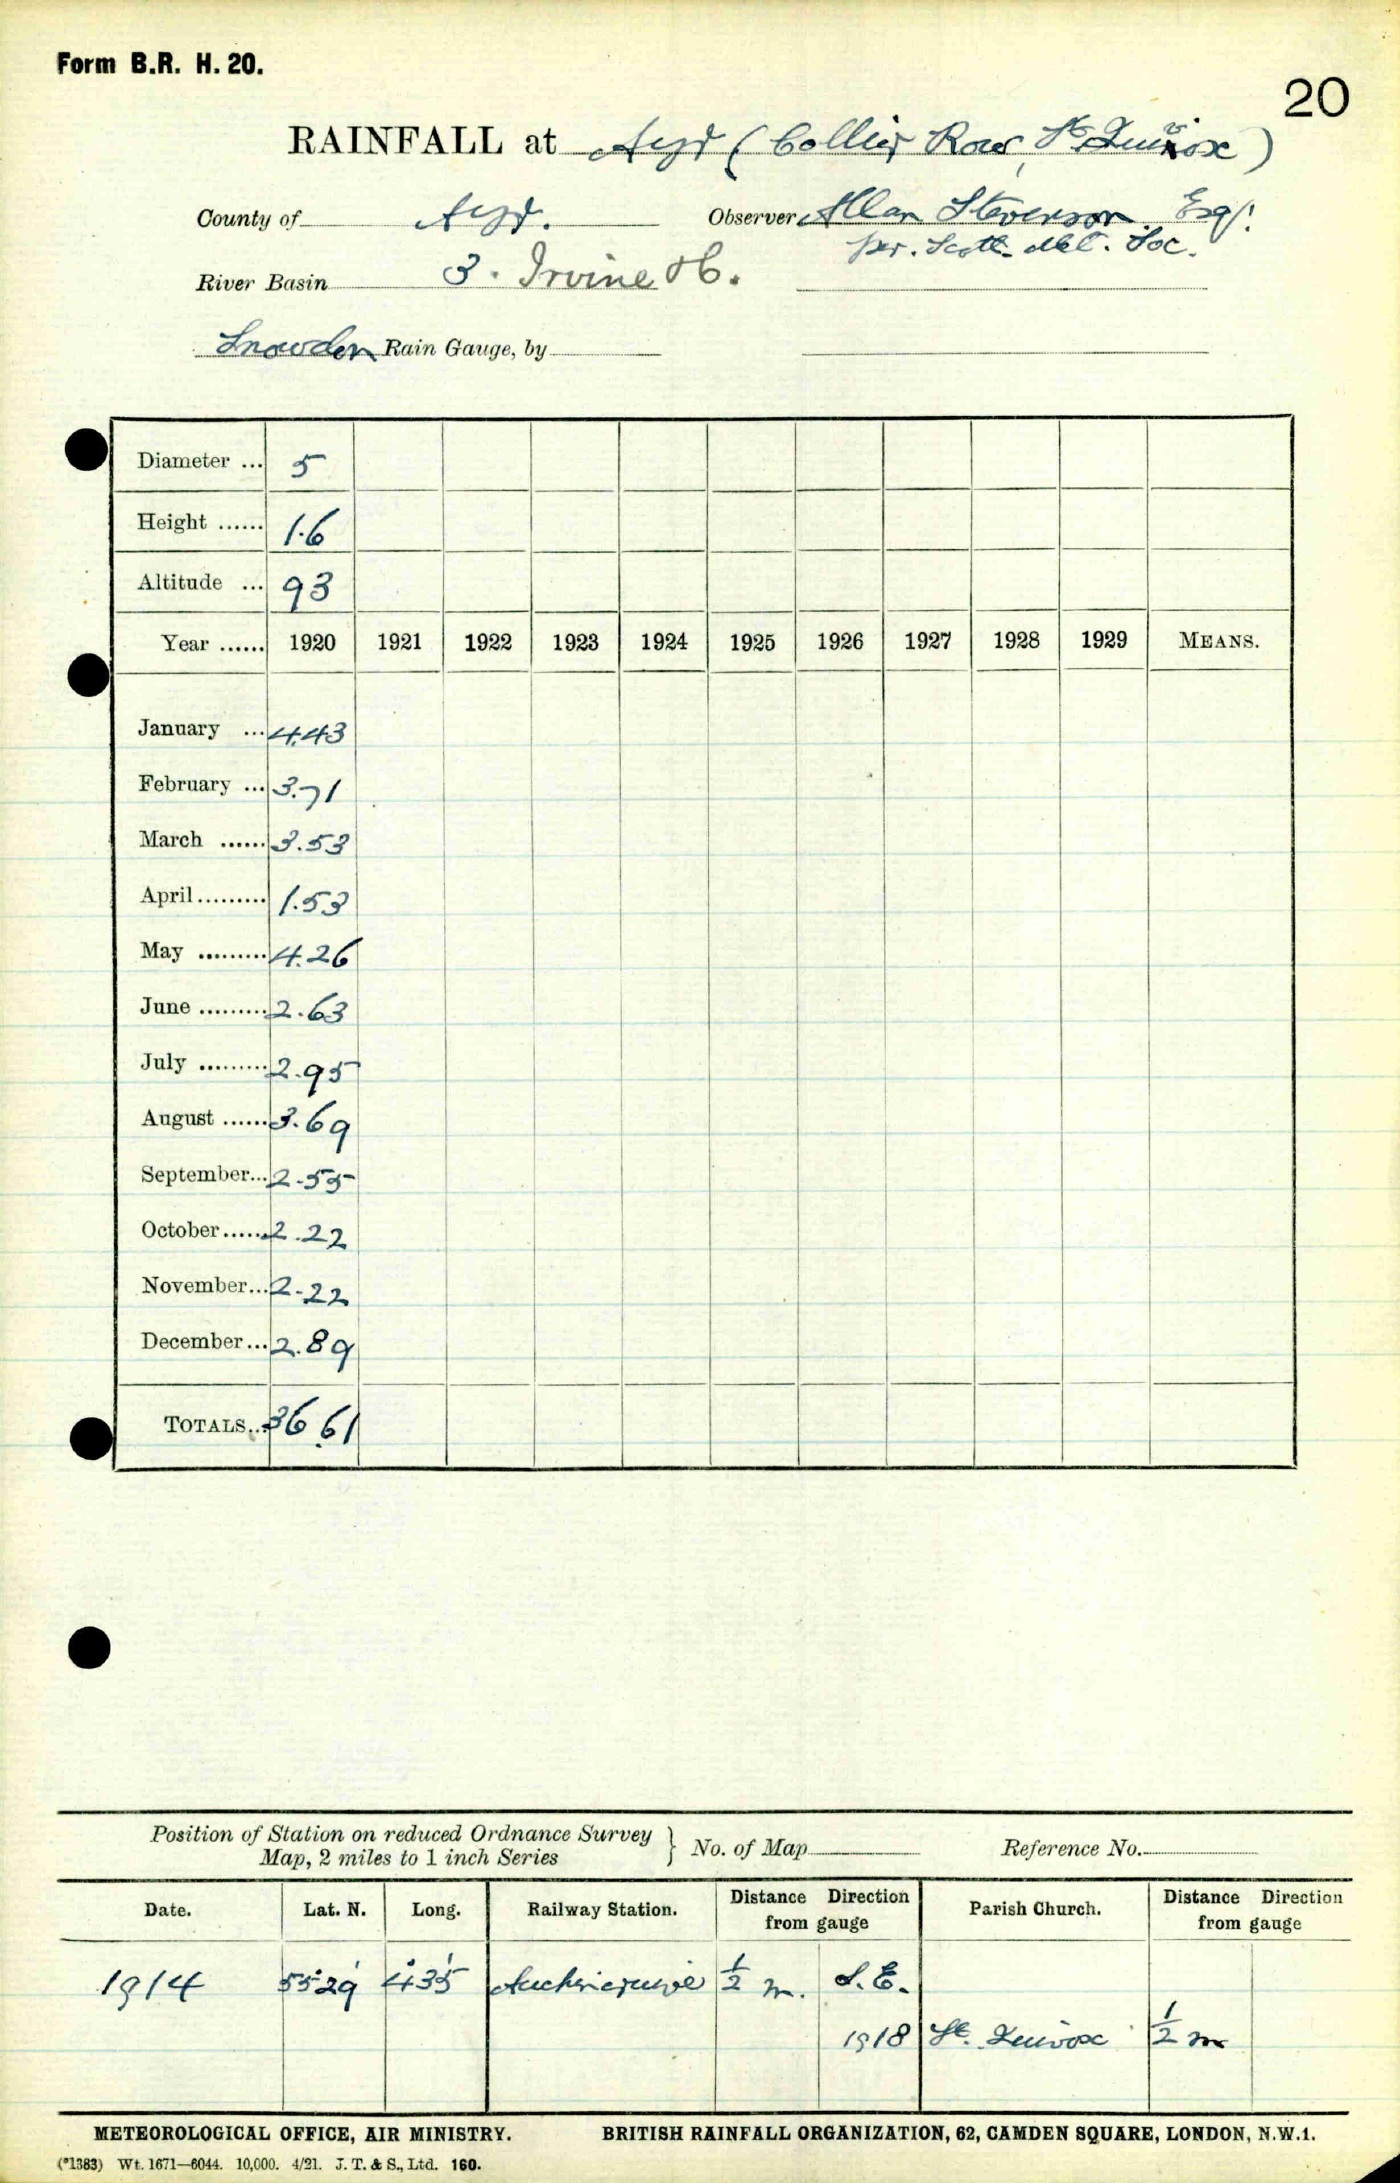 Form B.R. H. 20.
20
RAINFALL at Ayr (Collier Row, St. Quivox)
County of Ayr. Observer Allan Stevenson Esq.
per. Scott. Met. Soc.
River Basin 3. Irvine &c.
Snowdon Rain Gauge, by
Diameter ... 5
Height ...... 1.6
Altitude ... 93
Year ...... 1920 1921 1922 1923 1924 1925 1926 1927 1928 1929 MEANS.
January ... 4.43
February ... 3.71
March ...... 3.53
April ......... 1.53
May ......... 4.26
June ......... 2.63
July ......... 2.95
August ...... 3.69
September... 2.55
October...... 2.22
November... 2.22
December ... 2.89
TOTALS... 36.61
Position of Station on reduced Ordnance Survey
Map, 2 miles to 1 inch Series } No. of Map Reference No.
Date. Lat. N. Long. Railway Station. Distance Direction from gauge Parish Church. Distance Direction from gauge
1914 55°29' 4°35' Auchincruive ½ m. S.E.
1918 St. Quivox ½ m
METEOROLOGICAL OFFICE, AIR MINISTRY. BRITISH RAINFALL ORGANIZATION, 62, CAMDEN SQUARE, LONDON, N.W.1.
(*1383) Wt. 1671—6044. 10,000. 4/21. J. T. & S., Ltd. 160.